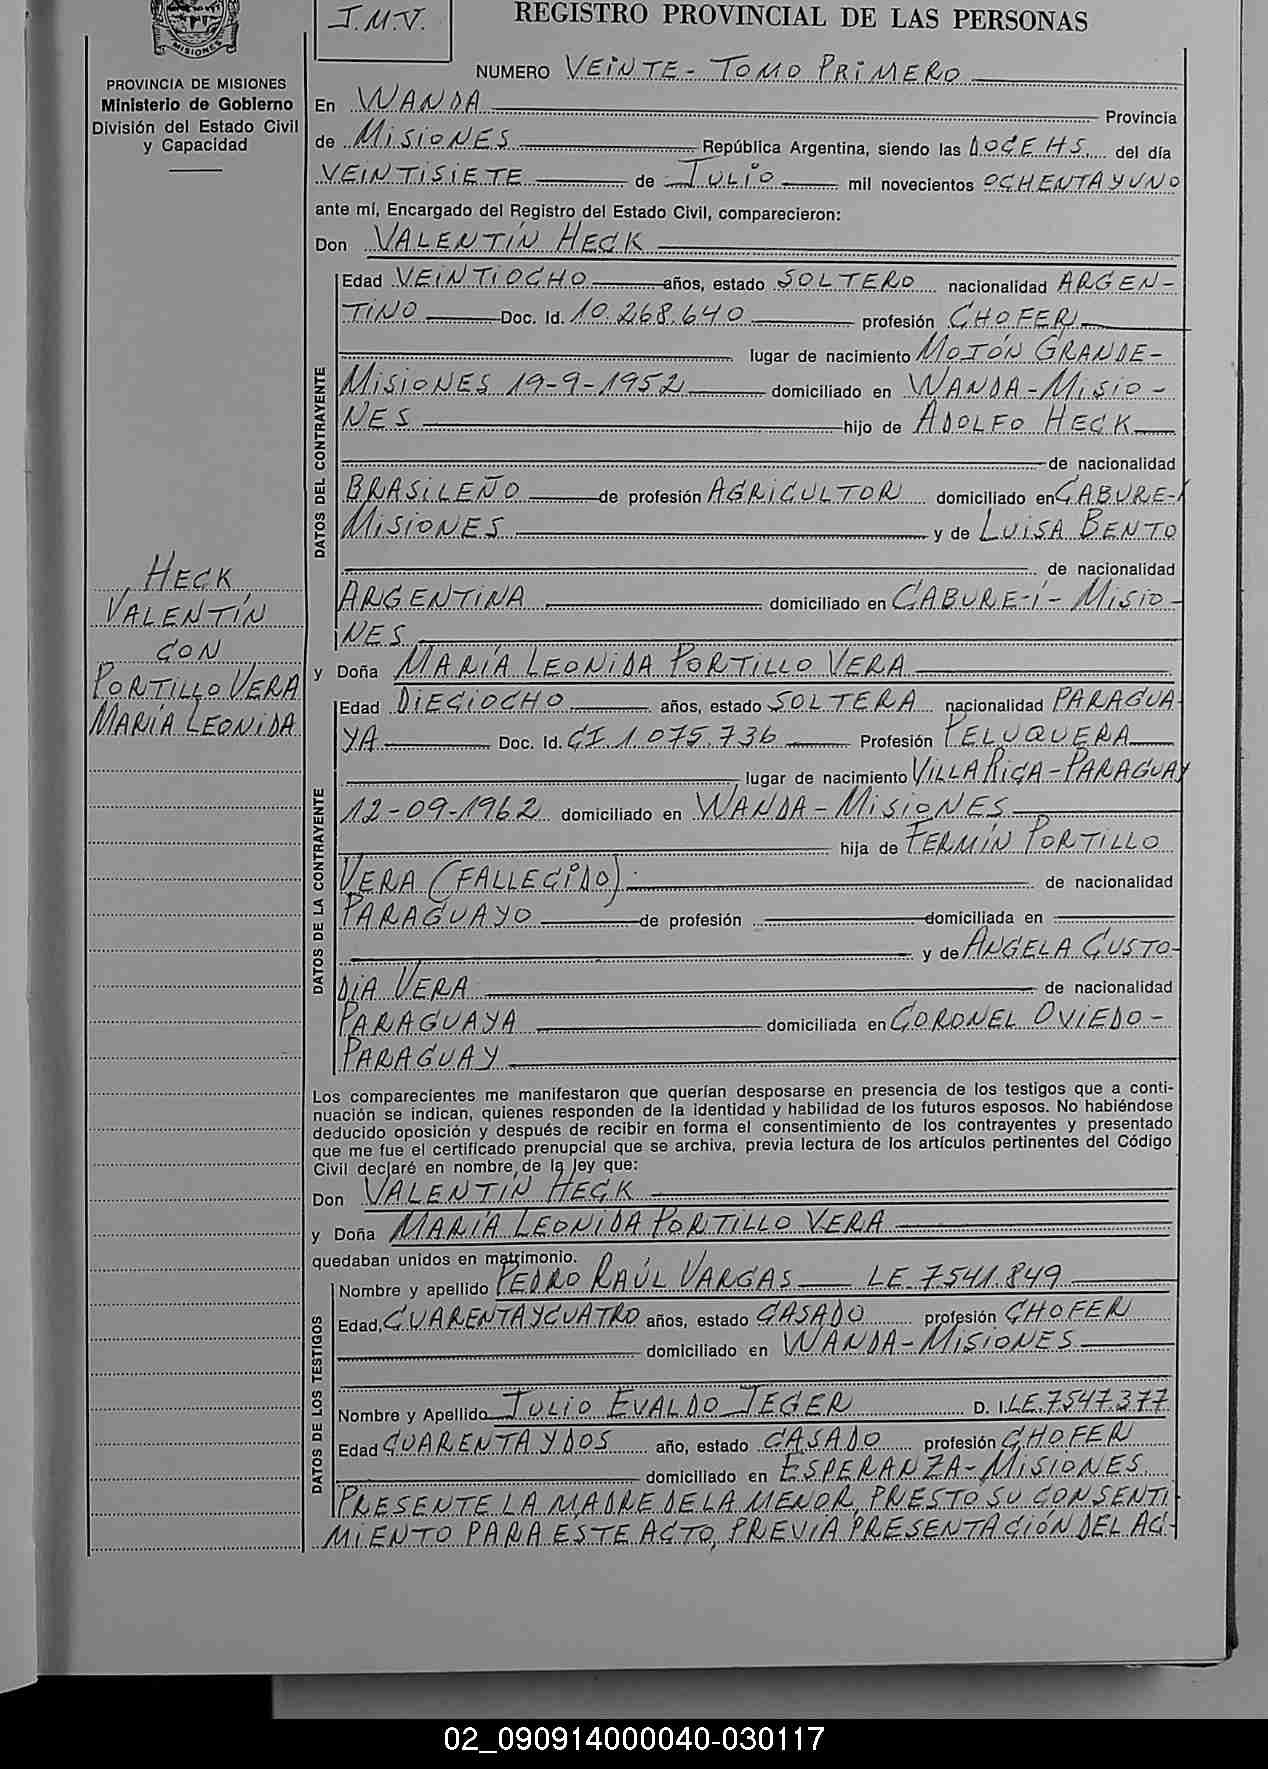 MISIONES
J.M.V.
REGISTRO PROVINCIAL DE LAS PERSONAS
PROVINCIA DE MISIONES
Ministerio de Gobierno
División del Estado Civil
y Capacidad
NUMERO VEINTE - TOMO PRIMERO
En WANDA Provincia
de MISIONES República Argentina, siendo las DOCE HS. del día
VEINTISIETE de JULIO mil novecientos OCHENTA Y UNO
ante mí, Encargado del Registro del Estado Civil, comparecieron:
Don VALENTÍN HECK
DATOS DEL CONTRAYENTE
Edad VEINTIOCHO años, estado SOLTERO nacionalidad ARGEN-
TINO Doc. Id. 10.268.640 profesión CHOFER
lugar de nacimiento MOJÓN GRANDE-
MISIONES 19-9-1952 domiciliado en WANDA - MISIO-
NES hijo de ADOLFO HECK
de nacionalidad
BRASILEÑO de profesión AGRICULTOR domiciliado en CABURE-I
MISIONES y de LUISA BENTO
de nacionalidad
ARGENTINA domiciliado en CABURE-I - MISIO-
NES
HECK
VALENTÍN
CON
PORTILLO VERA
MARÍA LEONIDA
y Doña MARÍA LEONIDA PORTILLO VERA
DATOS DE LA CONTRAYENTE
Edad DIECIOCHO años, estado SOLTERA nacionalidad PARAGUA-
YA Doc. Id. CI.1 075.736 Profesión PELUQUERA
lugar de nacimiento VILLA RICA - PARAGUAY
12-09-1962 domiciliado en WANDA - MISIONES
hija de FERMÍN PORTILLO
VERA (FALLECIDO)
de nacionalidad
PARAGUAYO de profesión domiciliada en
y de ANGELA CUSTO-
DIA VERA de nacionalidad
PARAGUAYA domiciliada en CORONEL OVIEDO-
PARAGUAY
Los comparecientes me manifestaron que querían desposarse en presencia de los testigos que a conti-
nuación se indican, quienes responden de la identidad y habilidad de los futuros esposos. No habiéndose
deducido oposición y después de recibir en forma el consentimiento de los contrayentes y presentado
que me fue el certificado prenupcial que se archiva, previa lectura de los artículos pertinentes del Código
Civil declaré en nombre de la ley que:
Don VALENTÍN HECK
y Doña MARÍA LEONIDA PORTILLO VERA
quedaban unidos en matrimonio.
DATOS DE LOS TESTIGOS
Nombre y apellido PEDRO RAÚL VARGAS LE.7541.849
Edad, CUARENTA Y CUATRO años, estado CASADO profesión CHOFER
domiciliado en WANDA - MISIONES
Nombre y Apellido JULIO EVALDO JEGER D. I. LE.7547.377
Edad CUARENTA Y DOS año, estado CASADO profesión CHOFER
domiciliado en ESPERANZA - MISIONES
PRESENTE LA MADRE DE LA MENOR, PRESTO SU CONSENTI-
MIENTO PARA ESTE ACTO, PREVIA PRESENTACIÓN DEL AC-
02_090914000040-030117